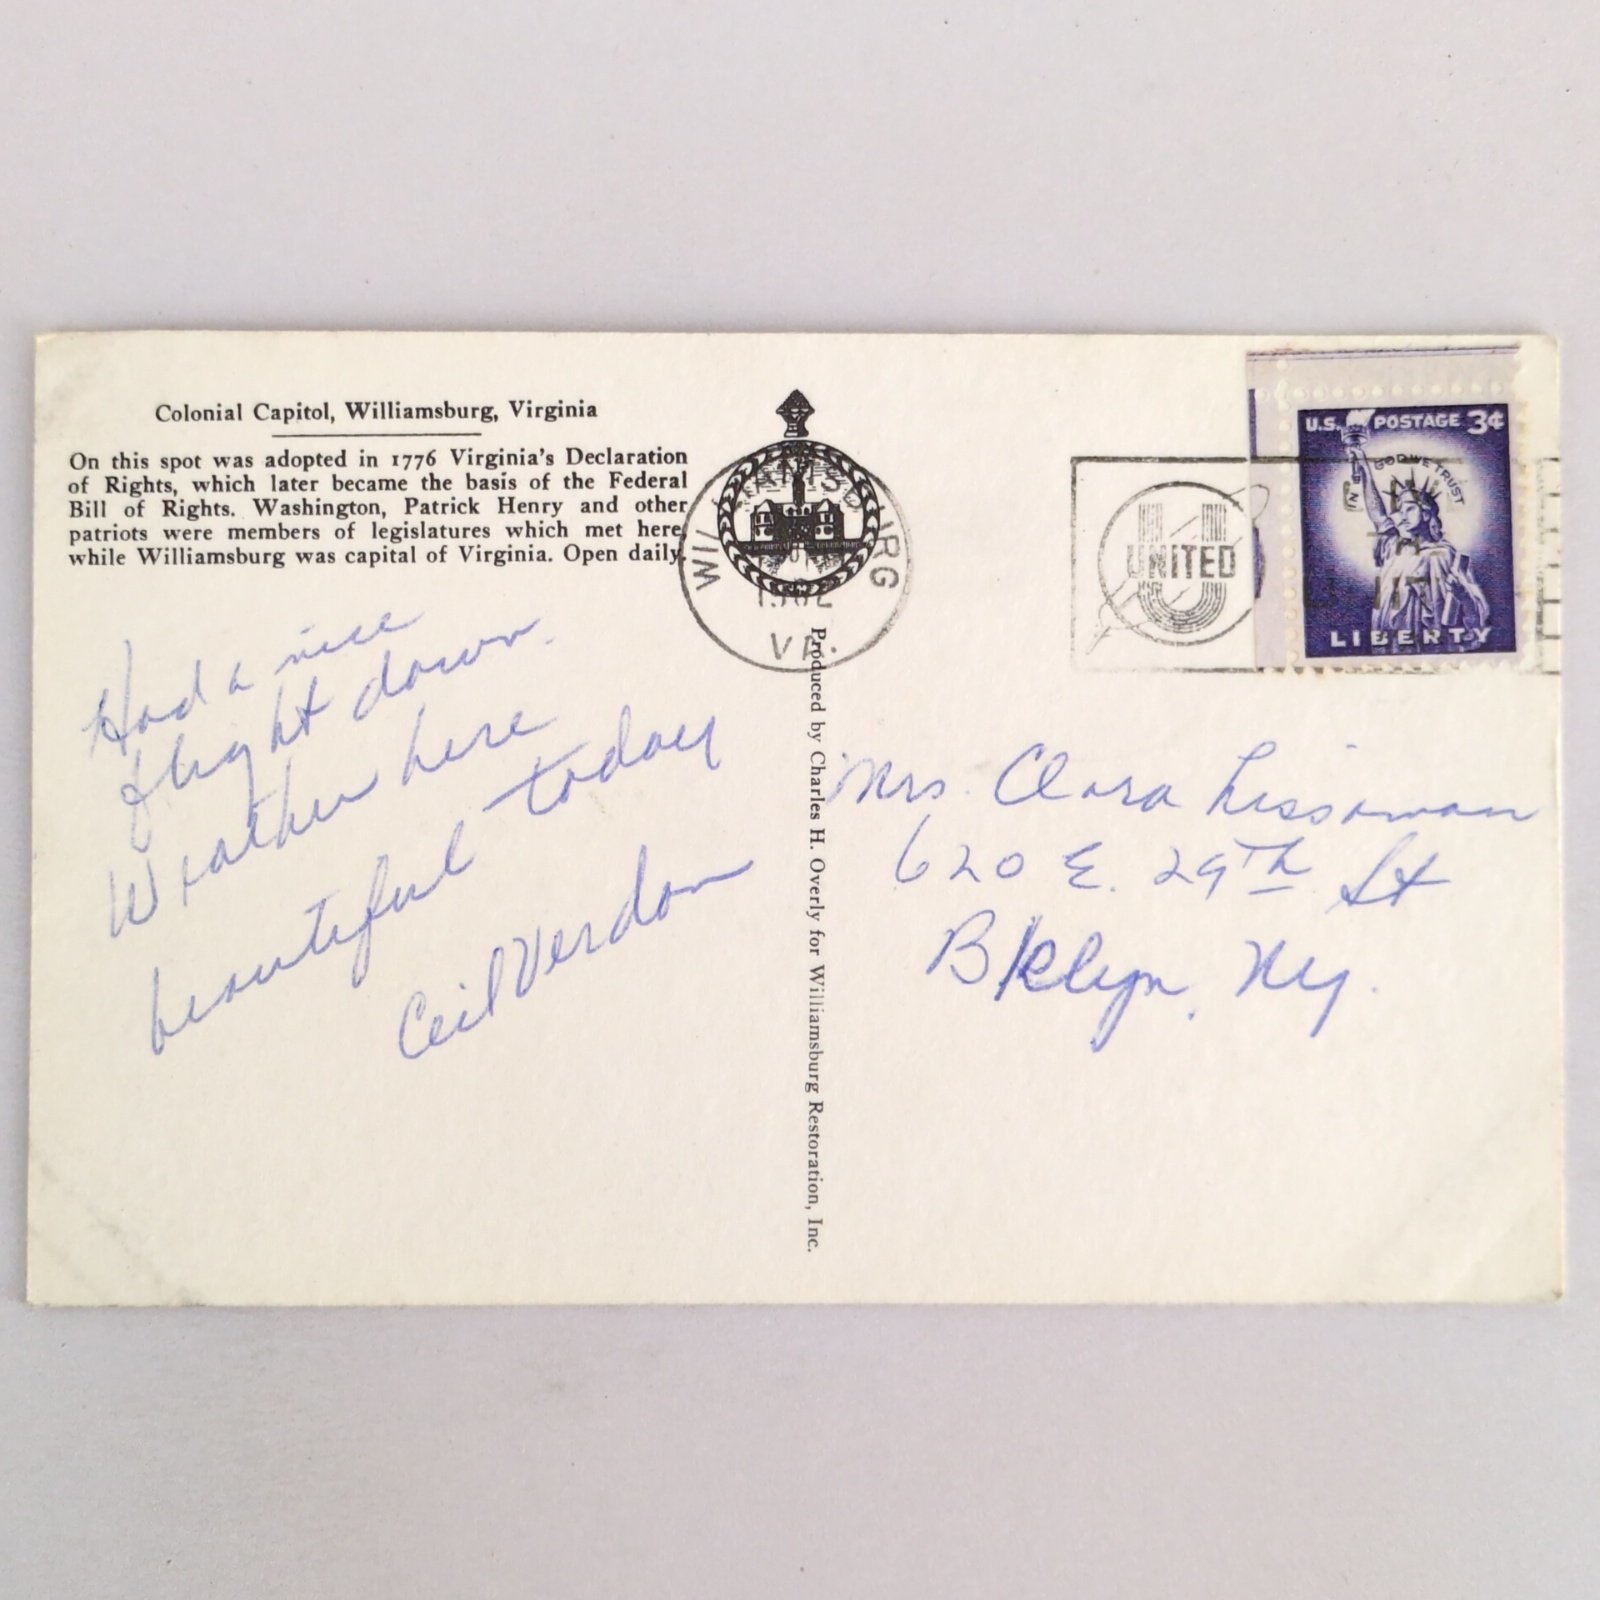 Colonial Capitol, Williamsburg, Virginia
On this spot was adopted in 1776 Virginia's Declaration
of Rights, which later became the basis of the Federal
Bill of Rights. Washington, Patrick Henry and other
patriots were members of legislatures which met here
while Williamsburg was capital of Virginia. Open daily.
Had a nice
flight down.
Weather here
beautiful today
Ceil Verdon
VA.
Produced by Charles H. Overly for Williamsburg Restoration, Inc.
UNITED
U.S. POSTAGE 3¢
IN GOD WE TRUST
LIBERTY
Mrs. Clara Lissaman
620 E. 29th St
Bklyn, Ny.